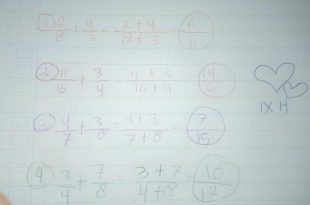 1) 2/8 + 4/3 = 2 + 4 / 8 + 3 = 6/11
2) 11/16 + 3/4 = 11 + 3 / 16 + 4 = 14/20
4/7 + 3/8 = 4 + 3 / 7 + 8 = 7/15
4) 3/4 + 7/8 = 3 + 7 / 4 + 8 = 10/12
IX H